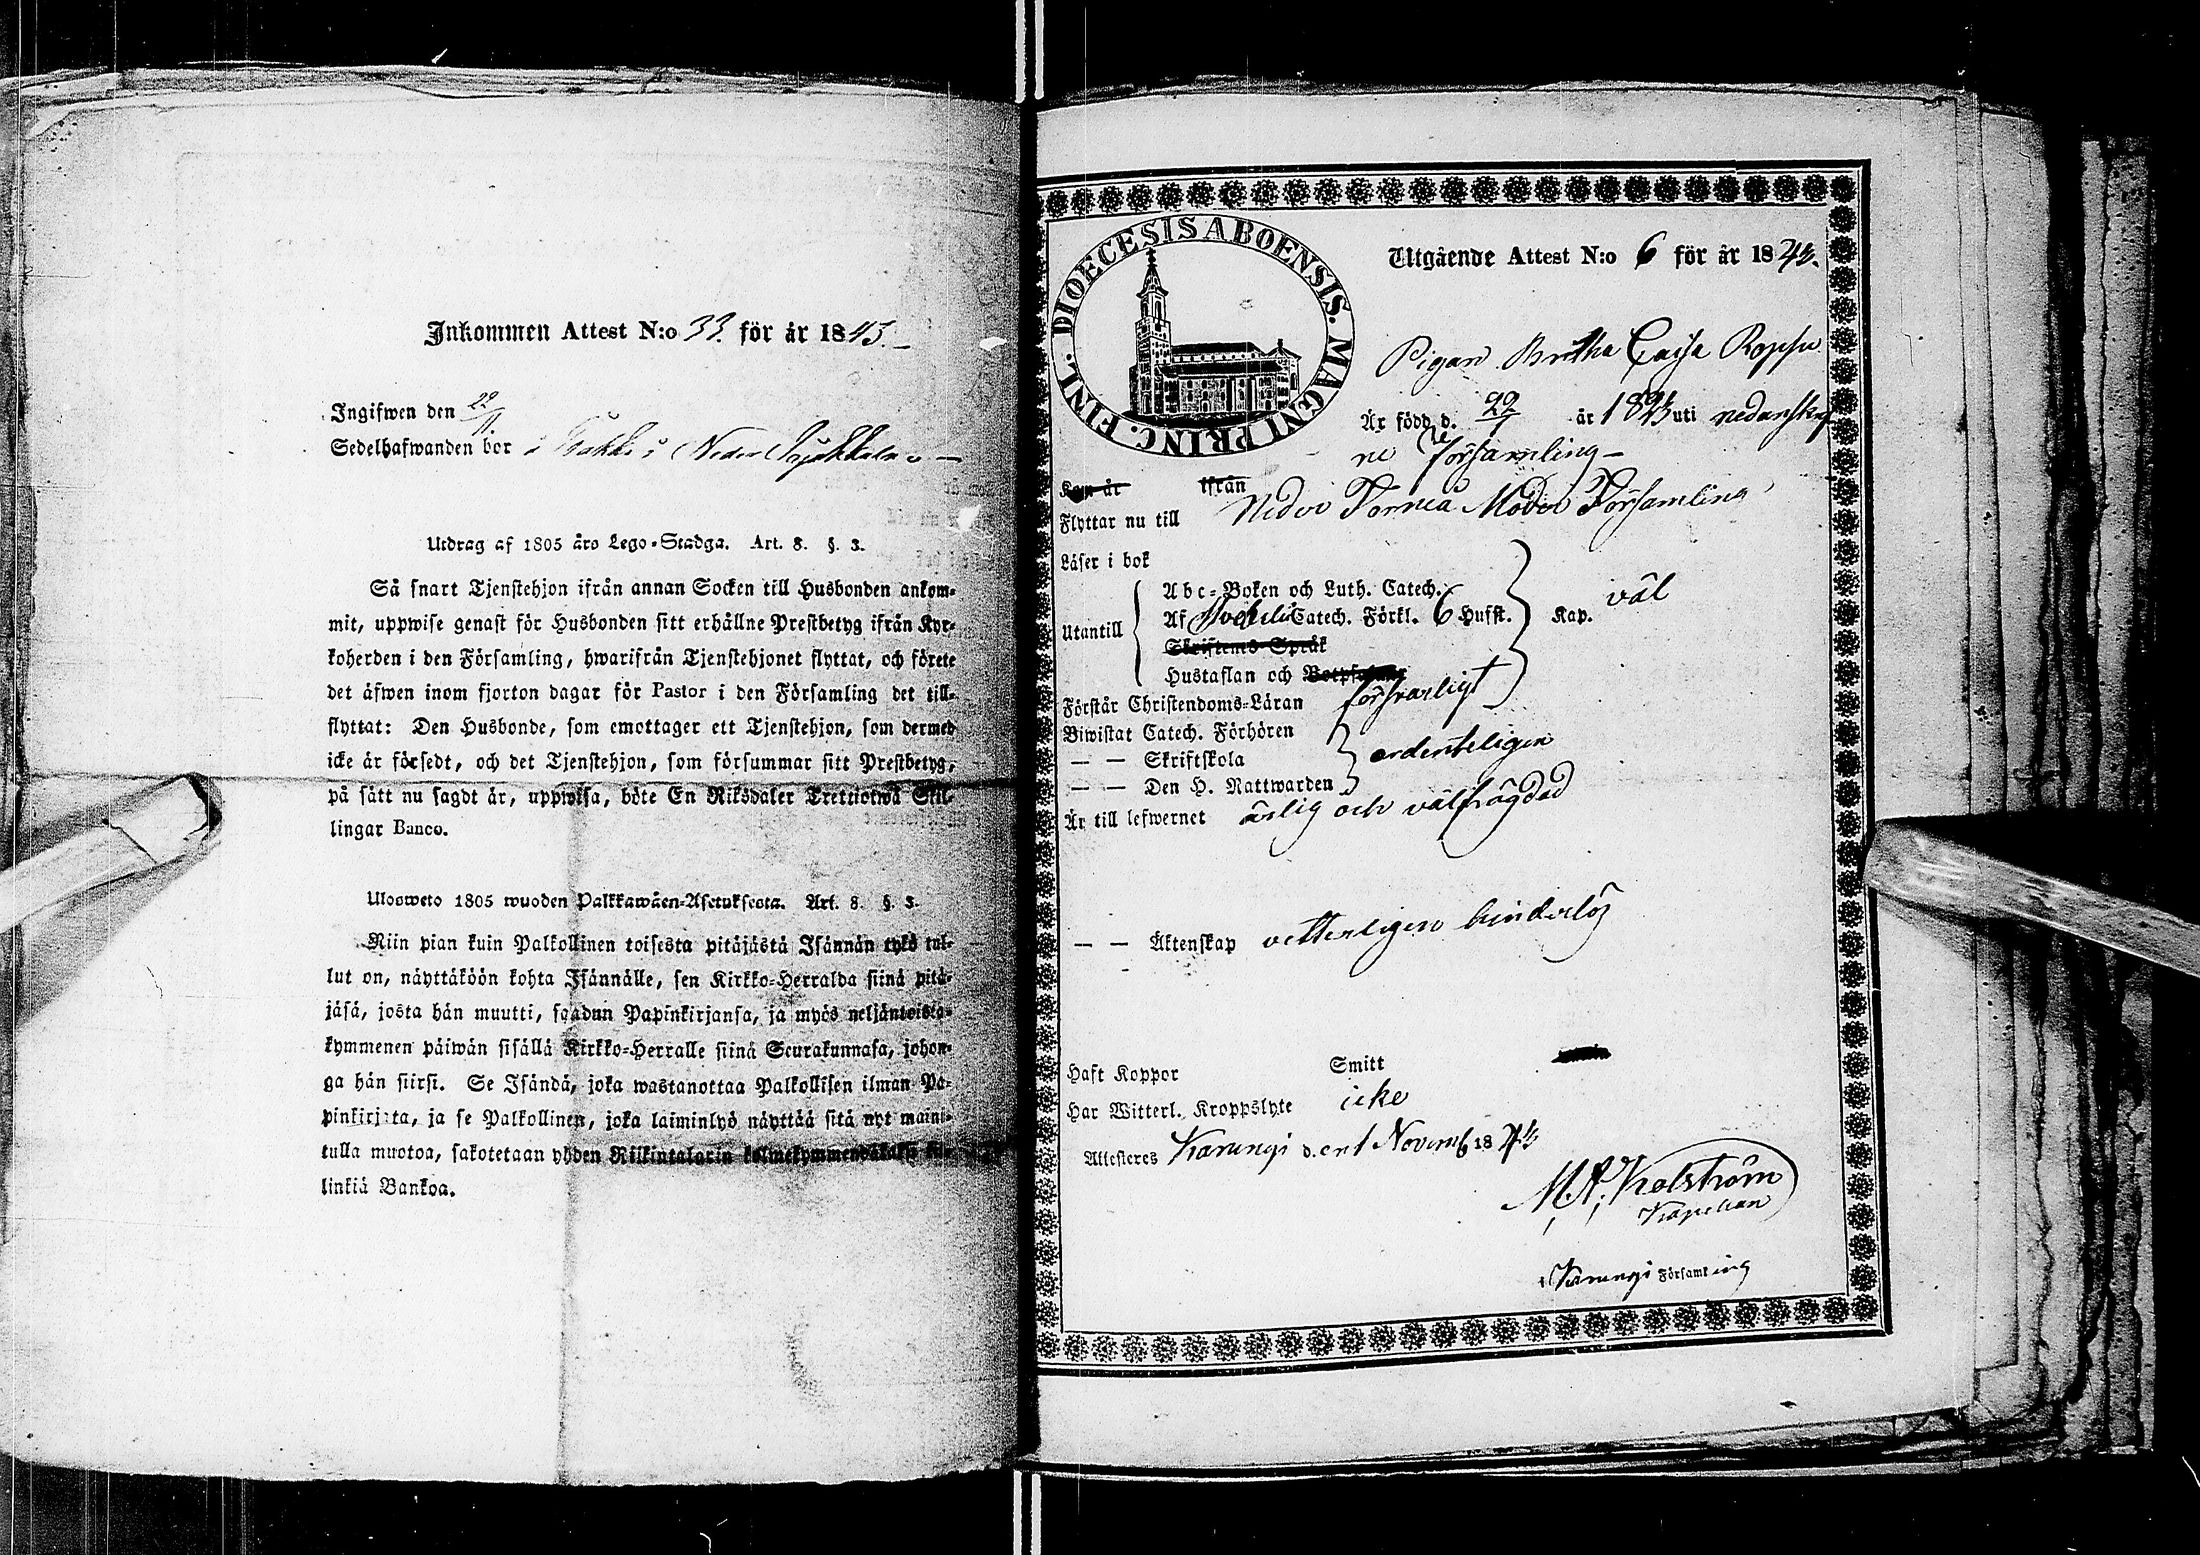 Inkommen Attest N:o 33. för år 1843.
Ingifwen den 22/11.
Sedelhafwanden bor i Neder
Utdrag af 1805 års Lego-Stadga. Art. 8. §. 3.
Så snart Tjenstehjon ifrån annan Socken till Husbonden ankom-
mit, uppwise genast för Husbonden sitt erhållne Prestbetyg ifrån Kyr-
koherden i den Församling, hwarifrån Tjenstehjonet flyttat, och förete
det äfwen inom fjorton dagar för Pastor i den Församling det till-
flyttat: Den Husbonde, som emottager ett Tjenstehjon, som dermed
icke är försedt, och det Tjenstehjon, som försummar sitt Prestbetyg,
på sätt nu sagdt är, uppwisa, böte En Riksdaler Trettiotwå Skil-
lingar Banco.
Ulosweto 1805 wuoden Palkkawäen-Asetuksesta. Art. 8. §. 3.
Niin pian kuin Palkollinen toisesta pitäjästä Isännän tykö tul-
lut on, näyttäköön kohta Isännälle, sen Kirkko-Herralda siinä pitä-
jäsä, josta hän muutti, saadun Papinkirjansa, ja myös neljäntoista-
kymmenen päiwän sisällä Kirkko-Herralle siinä Seurakunnasa, johon-
ga hän siirsi. Se Isändä, joka wastanottaa Palkollisen ilman Pa-
pinkirjata, ja se Palkollinen, joka laiminlyö näyttää sitä nyt maini-
tulla muotoa, sakotetaan yhden Riikintalarin kolmekymmendäkaksi kil-
linkiä Bankoa.
DIOECESIS ABOENSIS. MAGNI PRINC. FINL.
Utgående Attest N:o 6 för år 1843.
Pigan Britha Cajsa Ropsu
Är född d. 22 år 1823 uti nedanskef
ne Församling
Kap. år ifrån
Flyttar nu till Neder Torneå Moder Församling
Läser i bok
Utantill
Abc-Boken och Luth. Catech.
Af Svebilii Catech. Förkl. 6 Hufst. Kap. väl
Skriftenes Språk
Hustaflan och Botpsalmer
Förstår Christendoms-Läran försvarligt
Biwistat Catech. Förhören
— — Skriftskola ordenteligen
— — Den H. Nattwarden
Är till lefwernet ärlig och välfrägdad
— — Äktenskap vetterligen hinderlös
Haft Koppor Smitt
Har Witterl. Kroppslyte icke
Attesteres Karungi d. en 1 Novemb 1843
M. A. Kolström
Kapellan
i Karungi Församling